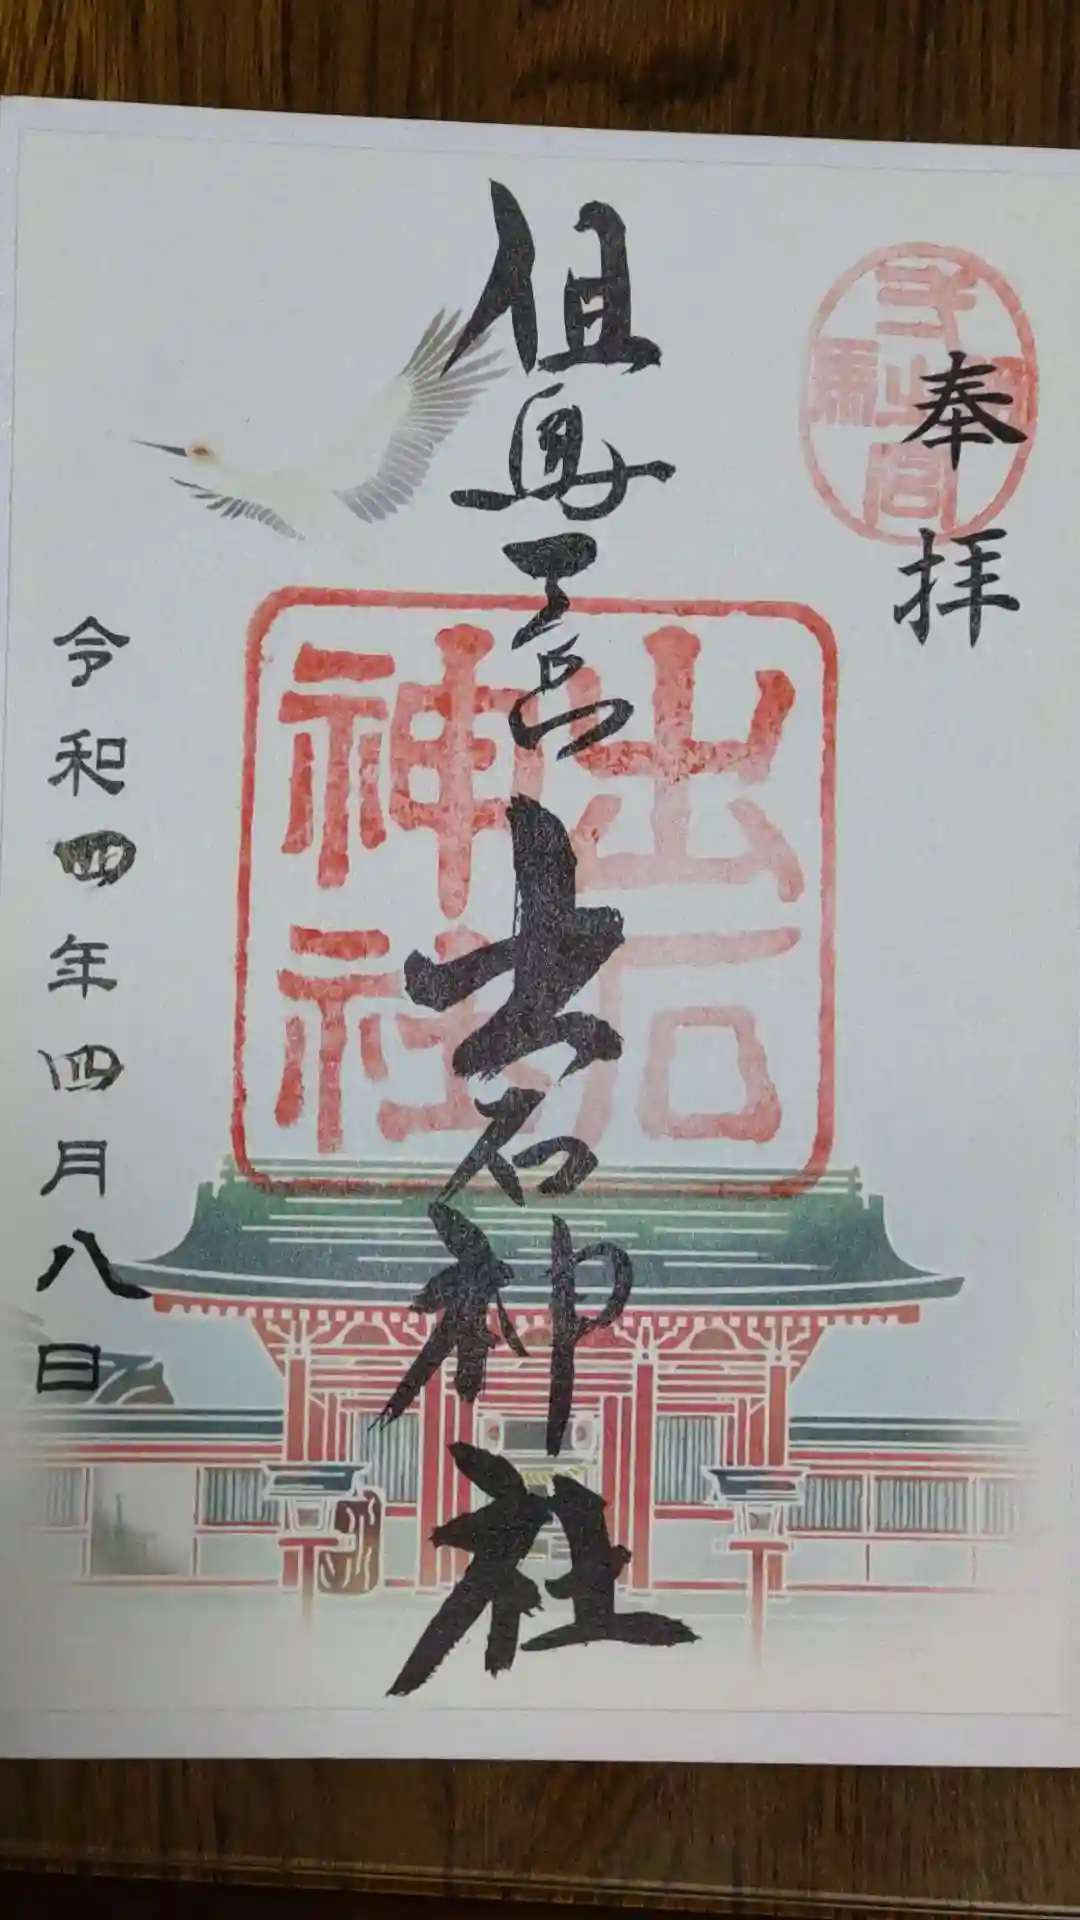 奉拝
但馬一宮
出石神社
令和四年四月八日
出石
神社